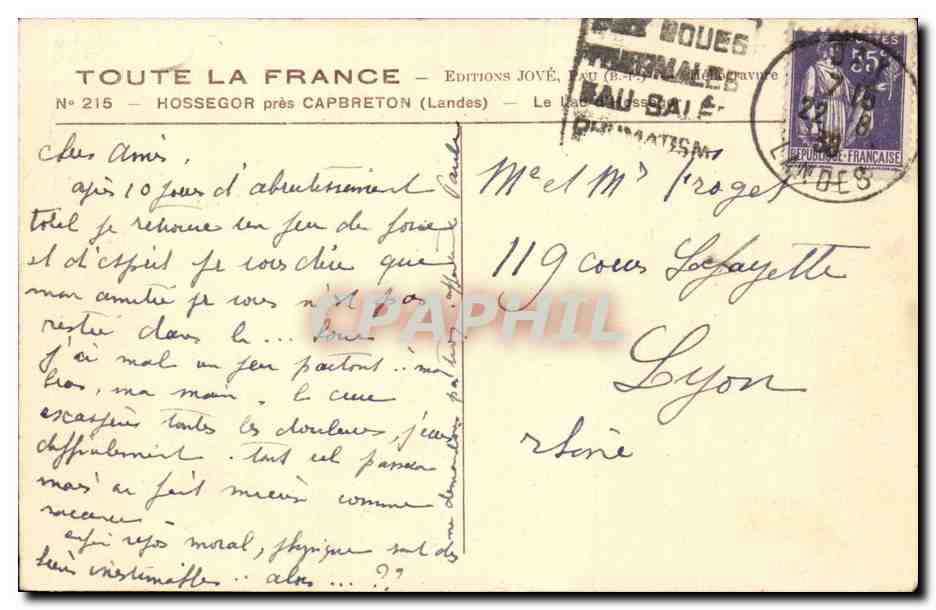 TOUTE LA FRANCE – EDITIONS JOVÉ, PAU (B.-P.) Héliogravure
N° 215 – HOSSEGOR près CAPBRETON (Landes) – Le Lac d'Hossegor
BOUES
THERMALES
EAU SALÉE
RHUMATISM
22 - 8
38
LANDES
POSTES
65c
REPUBLIQUE FRANÇAISE
Chers Amis.
après 10 jours d'abrutissement
total je retrouve un peu de force
et d'esprit je vous dire que
mon amitié pr vous n'est pas
restée dans la ... boue
j'ai mal un peu partout .. mon
bras, ma main. la cure
exaspère toutes les douleurs, j'écris
difficilement. tout cel passera
mais on fait mieux comme
vacances.
enfin repos moral, physique sont des
biens inestimables .. alors .... ??
ne demandons pas trop. affectueux Paule
Me et Mr Froget
119 cours Lafayette
Lyon
Rhône
CPAPHIL